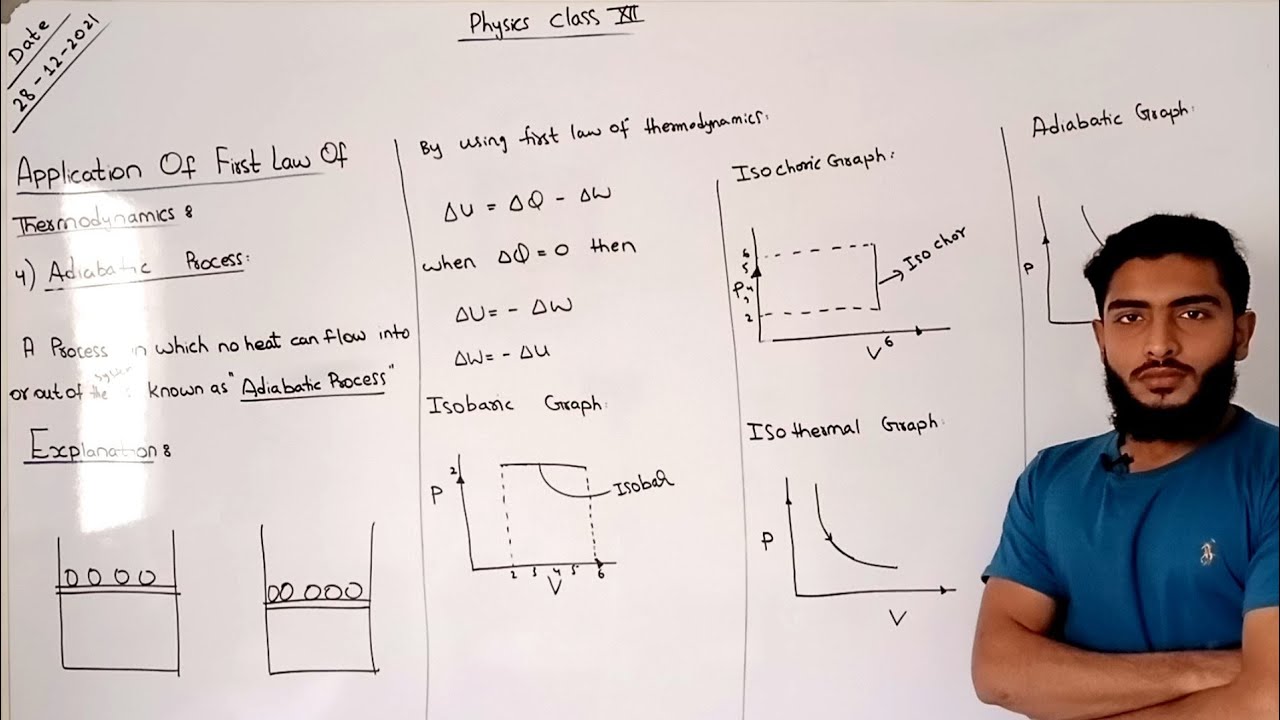 Date
28-12-2021
Physics class XII
Application Of First Law Of
Thermodynamics :
4) Adiabatic Process:
A Process in which no heat can flow into
or out of the system is known as "Adiabatic Process"
Explanation :
By using first law of thermodynamics:
ΔU = ΔQ - ΔW
when ΔQ = 0 then
ΔU = - ΔW
ΔW = - ΔU
Isobaric Graph:
2
P
Isobar
2 3 4 5 6
V
Isochoric Graph:
6
5
P 4
3
2
Isochor
V 6
Isothermal Graph:
P
V
Adiabatic Graph:
P